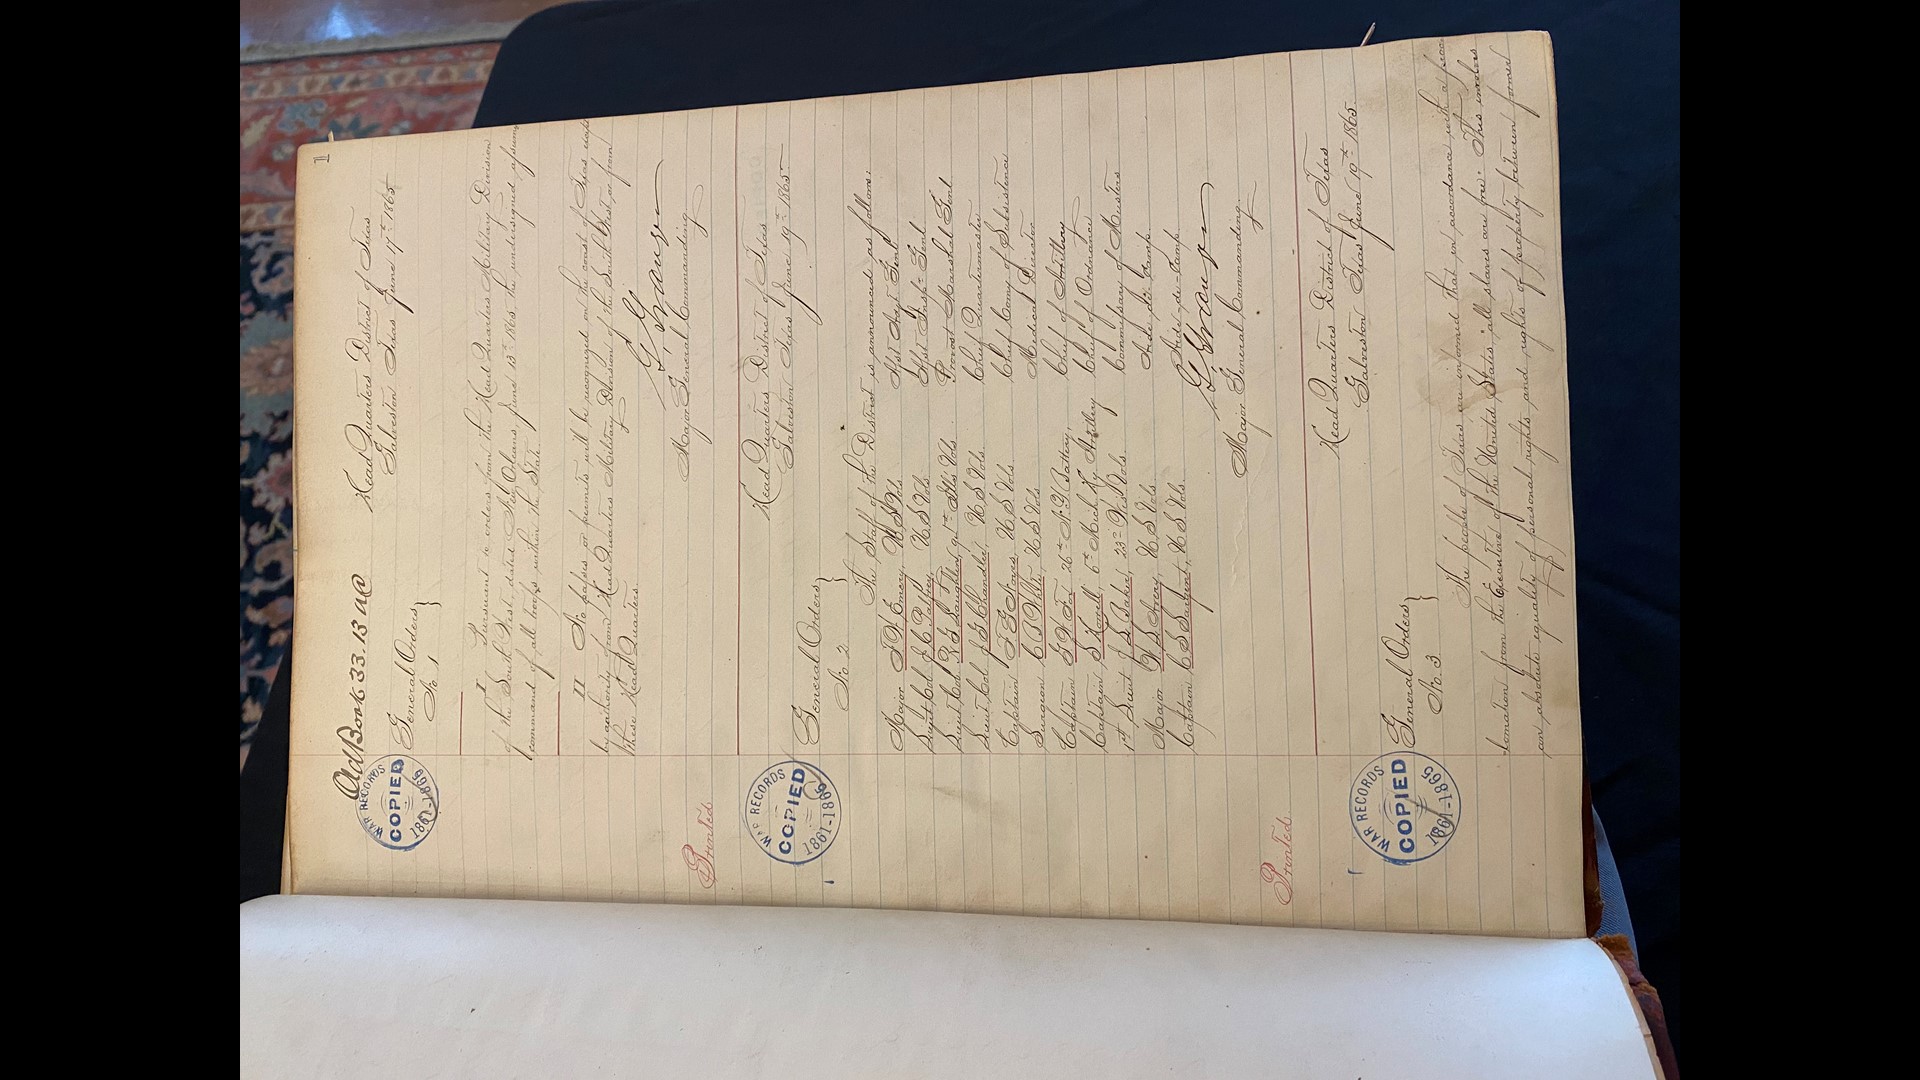 1
Old Book 33. 13 A@
Head Quarters District of Texas
Galveston Texas June 17th 1865.
General Orders }
No. 1
I Pursuant to orders from the Head Quarters Military Division
of the South West, dated New Orleans, June 13th 1865 the undersigned assumes
command of all troops within the State.
II No passes or permits will be recognized on the coast of Texas except
by authority from Head Quarters Military Division of the South West, or from
these Head Quarters.
G Granger
Major General Commanding
Printed
Head Quarters District of Texas
Galveston Texas June 19th 1865.
General Orders }
No. 2
The Staff of the District is announced as follows:
Major F. W. Emery, U.S. Vols. Asst Adjt Genl
Lieut Col. U S Vols Asst Insp- Genl
Lieut Col. R G Laughlin, 94th Ills Vols Provost Marshal Genl
Lieut Col J G Chandler U S Vols. Chief Quartermaster
Captain U S Vols. Chief Comy of Subsistence
Surgeon C B White U S Vols Medical Director
Captain G W Fox 26th N.Y. Battery, Chief of Artillery
Captain S Howell 6th Mich. Hvy Artillery Chief of Ordnance
1st Lieut L Baker, 23rd Wis Vols Commissary of Musters
Major U S Vols Aide de Camp
Captain C S Sargent, U S Vols. Aide-de-Camp.
G Granger
Major General Commanding.
Printed
Head Quarters District of Texas
Galveston Texas June 19th 1865.
General Orders }
No. 3.
The people of Texas are informed that, in accordance with a procla-
-lamation from the Executive of the United States, all slaves are free. This involves
an absolute equality of personal rights and rights of property between former
WAR RECORDS
COPIED
1861-1865
WAR RECORDS
COPIED
1861-1865
WAR RECORDS
COPIED
1861-1865